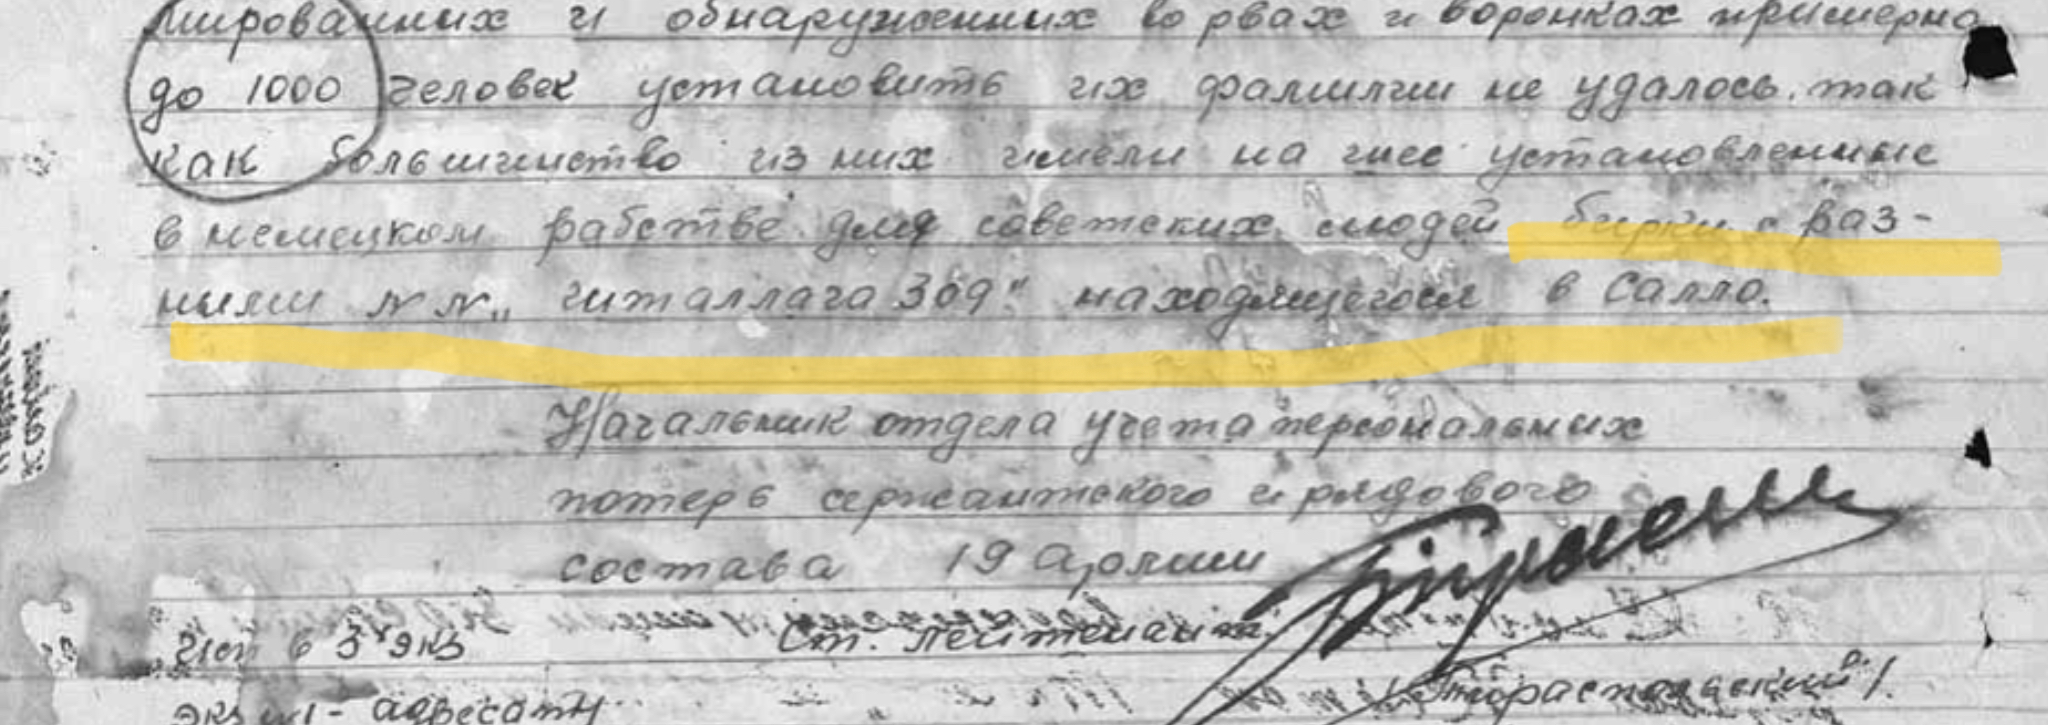 мированных и обнаруженных во рвах и воронках примерно
до 1000 человек установить их фамилии не удалось. так
как большинство из них имели на шее установленные
в немецком рабстве для советских людей бирки с раз-
ными №№ „шталлага 309" находящегося в Салло.
Начальник отдела учета персональных
потерь сержантского и рядового
состава 19 армии
Ст. лейтенант
исп в 3х экз
/Тираспольский/.
экз №1 - адресату